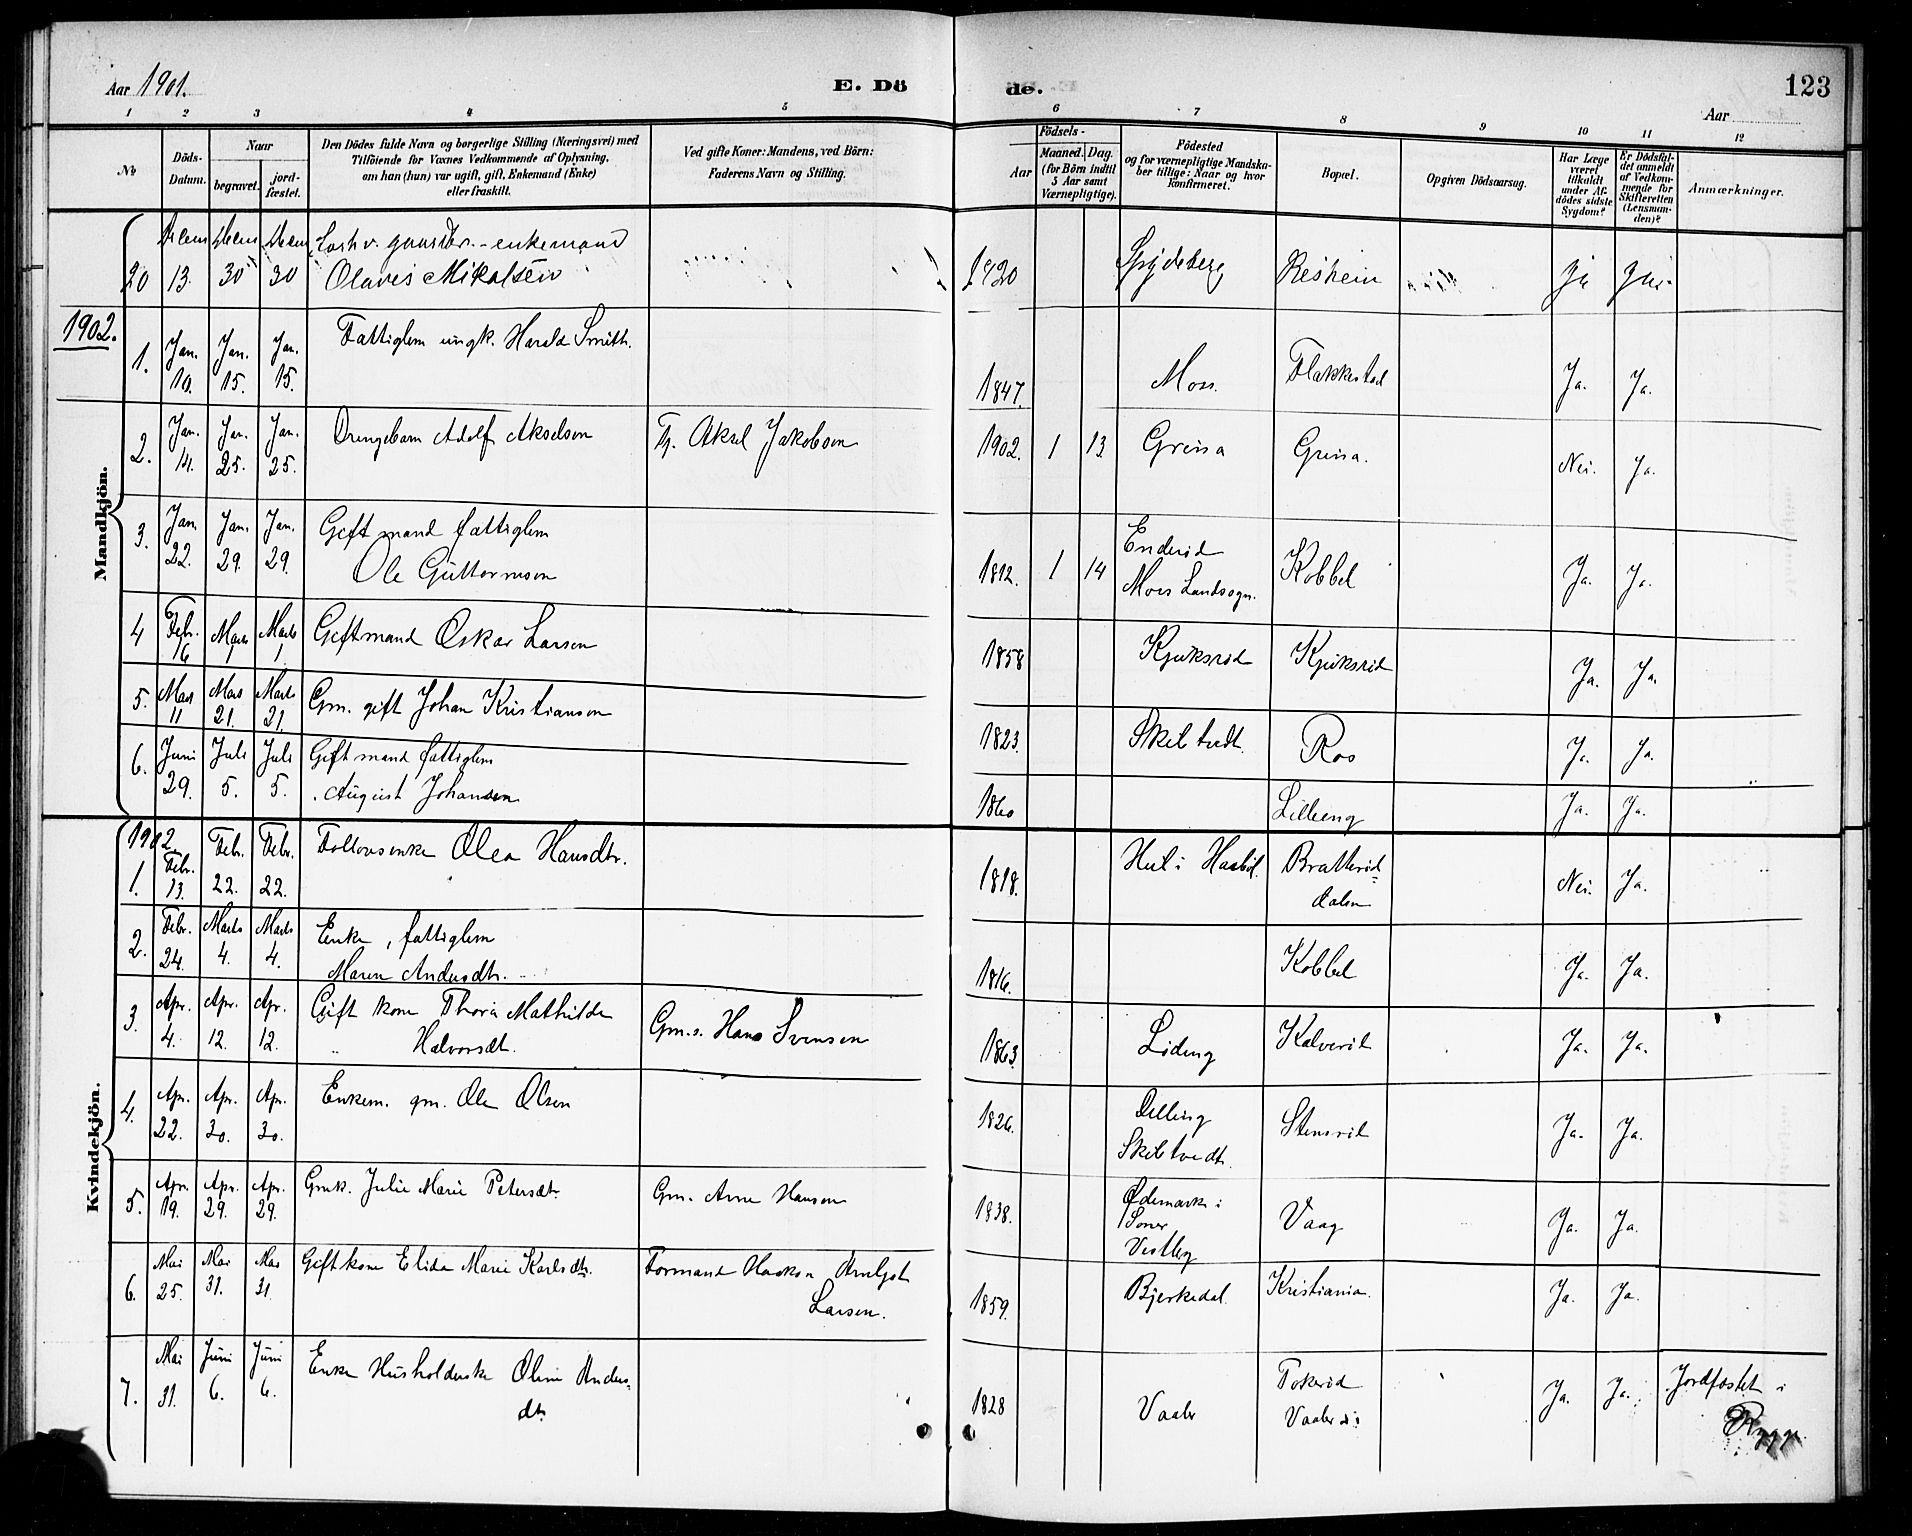 Aar 1901.
E. Dö
de.
123
Aar
1 2 3 4 5 6 7 8 9 10 11 12
No
Döds-
Datum.
Naar
begravet.
jord-
fæstet.
Den Dödes fulde Navn og borgerlige Stilling (Næringsvei) med
Tilföiende for Voxnes Vedkommende af Oplysning,
om han (hun) var ugift, gift, Enkemand (Enke)
eller fraskilt.
Ved gifte Koner: Mandens, ved Börn:
Faderens Navn og Stilling.
Födsels-
Aar
Maaned. Dag.
(for Börn indtil
5 Aar samt
Værnepligtige).
Födested
og for værnepligtige Mandska-
ber tillige: Naar og hvor
konfirmeret.
Bopæl.
Opgiven Dödsaarsag.
Har Læge
været
tilkaldt
under Af-
dödes sidste
Sygdom?
Er Dödsfal-
det anmeldt
af Vedkom-
mende for
Skifteretten
(Lensman-
den)?
Anmærkninger.
Mandkjön.
20 13. 30 30 enkemand
Olaves Mikalsen 1820 Spydeberg
1902.
1. Jan. 10. Jan. 15. Jan. 15. Fattiglem ungk. Harald Smith. 1847. Moss. Flakkestad Ja. Ja.
2. Jan. 14. Jan. 25. Jan. 25. Drengebarn Adolf Akselsen Tj. Aksel Jakobsen 1902. 1 13. Greisa Greisa. Nei. Ja.
3. Jan. 22. Jan. 29. Jan. 29. Gift mand fattiglem
Ole Guttormsen 1812. 1 14 Enderød
Moss Landsogn. Kobbel Ja. Ja.
4 Febr. 16 Marts 1 Marts 1. Gift mand Oskar Larsen 1858 Kjuksrød Kjuksrød Ja. Ja.
5. Mars 11 Mars 21. Marts 21. Gm. gift Johan Kristiansen 1823. Skeltvedt. Ros Ja. Ja.
6. Juni 29. Juli 5. Juli 5. Gift mand fattiglem
August Johansen 1860 Lilleeng Ja. Ja.
Kvindekjön.
1902.
1. Febr. 13. Febr. 22. Febr. 22. Olea Hansdtr. 1818. Hul i Haabøl. Bratterød-
dalen Nei. Ja.
2. Febr. 24. Marts 4. Marts 4. Enke, fattiglem
Maren Andersdtr. 1816. Kobbel Ja. Ja.
3. Apr. 4. Apr. 12. Apr. 12. Gift kone Thora Mathilde
Halvorsdt. Gm.s. Hans Svensen 1863. Lideng Kalverød Ja. Ja.
4. Apr. 22. Apr. 30. Apr. 30. Enkem. gm. Ole Olsen 1826. Delling
Skeltvedt. Stensrød Ja. Ja.
5. Apr. 19. Apr. 29. Apr. 29. Gmk. Julie Marie Petersdt. Gm. Arne Hansen 1838. Ødemark i
Soner
Vestby Vaag Ja. Ja.
6. Mai 25. Mai 31. Mai 31. Gift kone Elida Marie Karlsdtr. Formand Haakon
Larsen. 1859. Bjerkedal. Kristiania. Ja. Ja.
7. Mai 31. Juni 6. Juni 6. Enke Husholderske Oline Anders-
dtr. 1828 Vaaler Tokerød
Vaaler Ja. Ja. Jordfæstet i
Rygge.